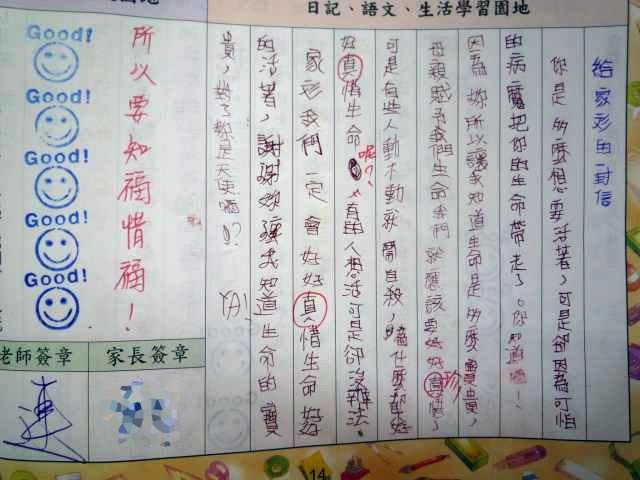 日記、語文、生活學習園地
給家彤的一封信
你是多麼想要活著,可是卻因為可怕
的病魔把你的生命帶走了。你知道嗎!
因為妳所以讓我知道生命是多麼寶貴,
母親賦予我們生命我們就應該要好好珍惜,
可是有些人動不動就鬧自殺,
好真惜生命呢?有的人想活可是卻沒辦法。
家彤我們一定會好好真惜生命好好
的活著,謝謝妳讓我知道生命的寶
貴,對了妳是天使嗎?YA!
所以要知福惜福!
Good!
Good!
Good!
Good!
Good!
老師簽章
家長簽章
連
14